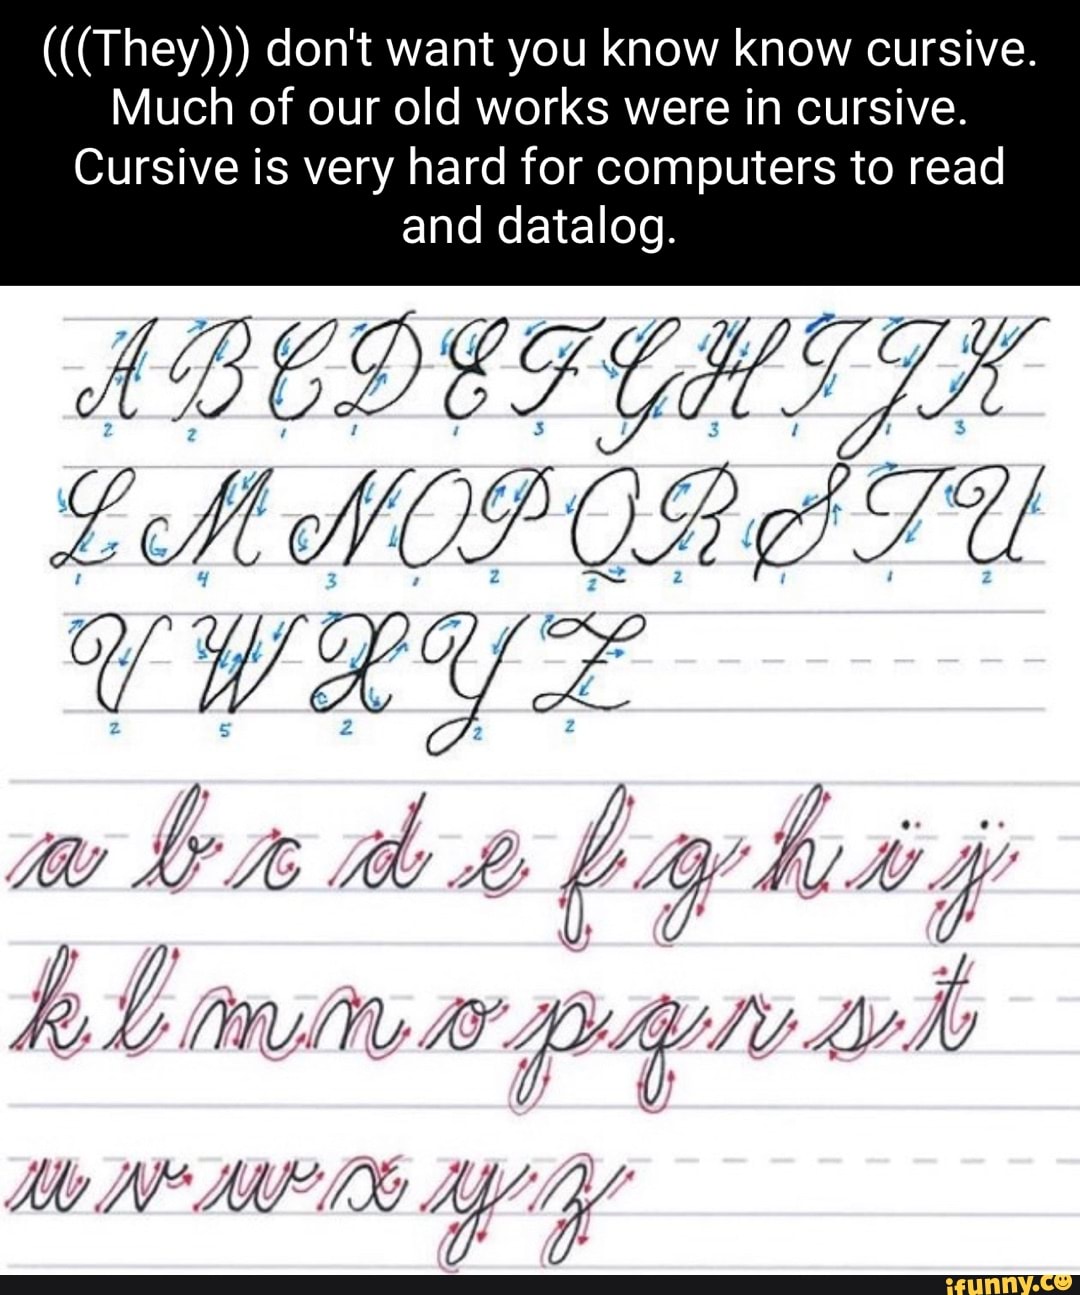 (((They))) don't want you know know cursive.
Much of our old works were in cursive.
Cursive is very hard for computers to read
and datalog.
A B C D E F G H I J K
2 2 1 1 1 3 1 3 1 1 3
L M N O P Q R S T U
1 4 3 1 2 2 2 1 1 2
V W X Y Z
2 5 2 2 2
a b c d e f g h i j
k l m n o p q r s t
u v w x y z
ifunny.co